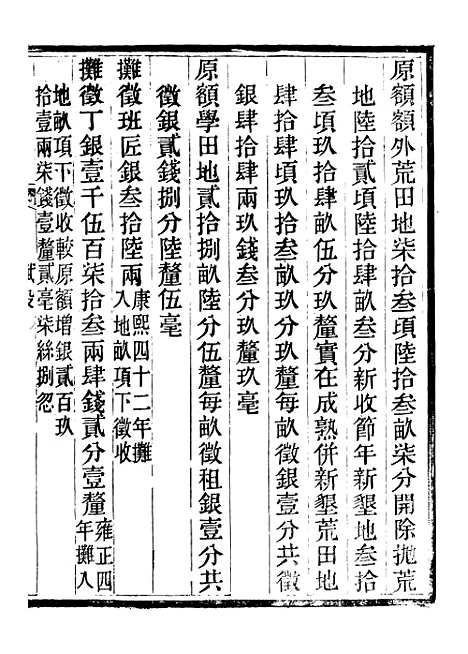 原額額外荒田地柒拾叁頃陸拾叁畝柒分開除拋荒
地陸拾貳頃陸拾肆畝叁分新收節年新墾地叁拾
叁頃玖拾肆畝伍分玖釐實在成熟併新墾荒田地
肆拾肆頃玖拾叁畝玖分玖釐每畝徵銀壹分共徵
銀肆拾肆兩玖錢叁分玖釐玖毫
原額學田地貳拾捌畝陸分伍釐每畝徵租銀壹分共
徵銀貳錢捌分陸釐伍毫
攤徵班匠銀叁拾陸兩康熙四十二年攤
入地畝項下徵收
攤徵丁銀壹千伍百柒拾叁兩肆錢貳分壹釐雍正四
年攤入
地畝項下徵收較原額增銀貳百玖
拾壹兩柒錢壹釐貳毫柒絲捌忽